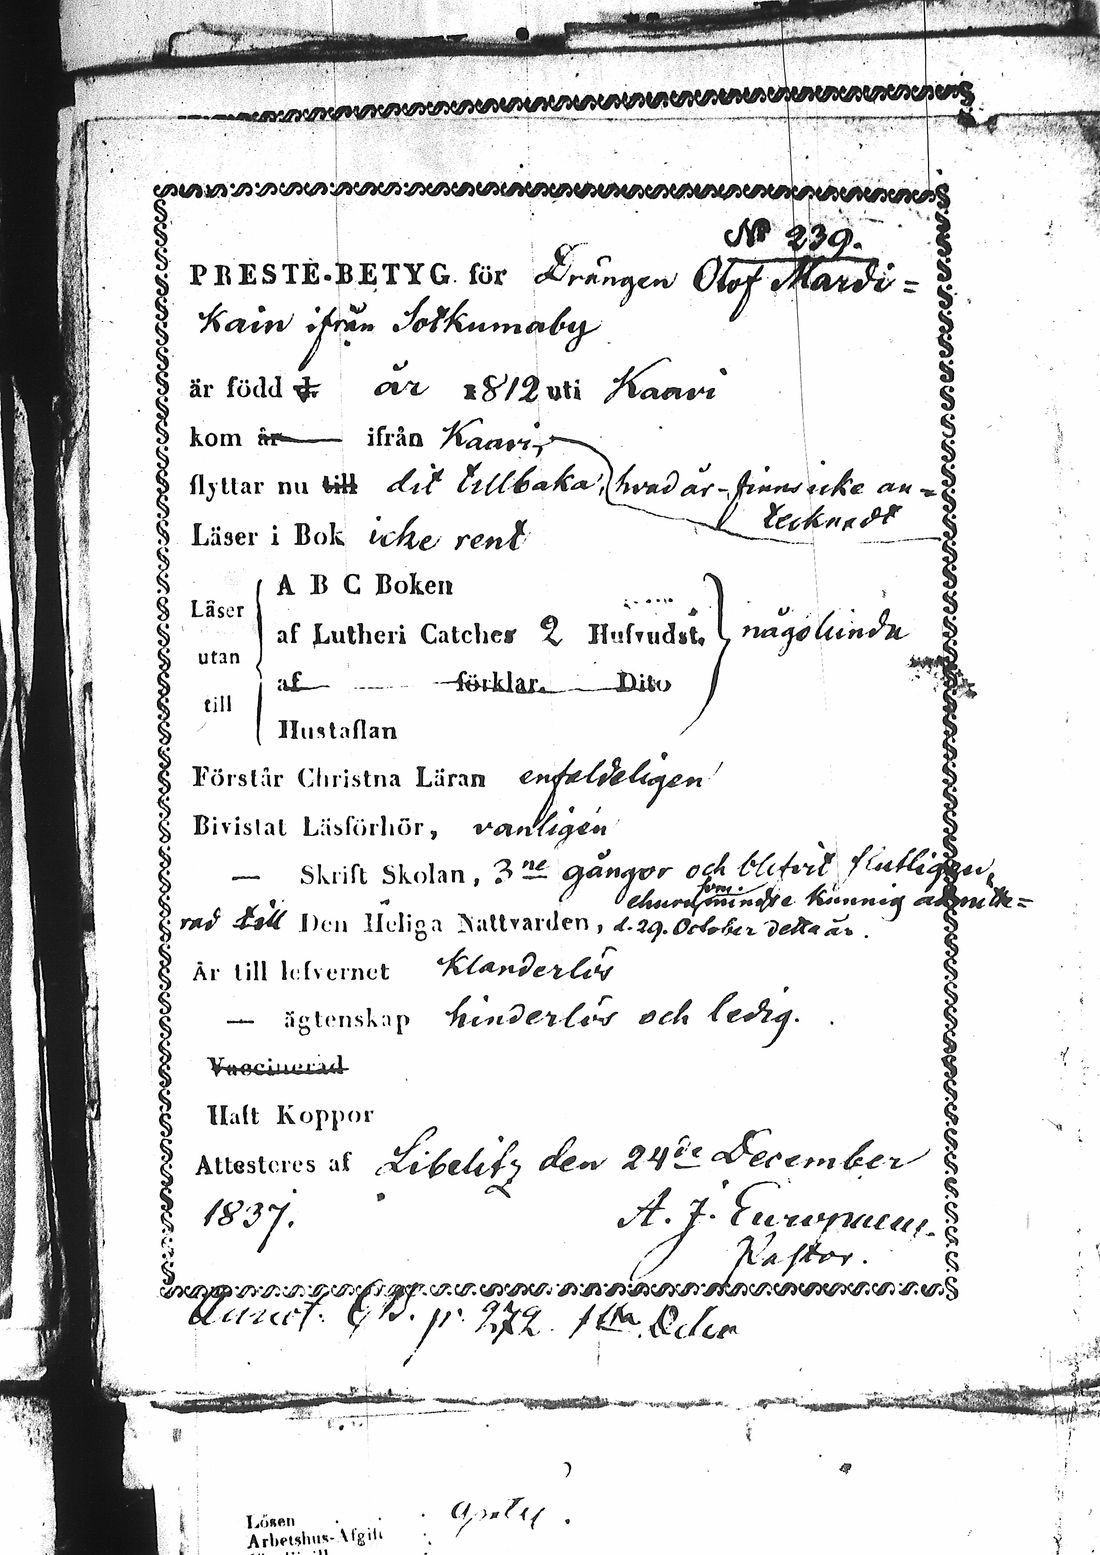 Nº 239.
PRESTE-BETYG för Drängen Olof Mardi=
kain ifrån Sotkumaby
är född d. år 1812 uti Kaavi
kom år ifrån Kaavi,
flyttar nu till dit tillbaka, hvad år finns icke an=
tecknadt
Läser i Bok icke rent
A B C Boken
Läser
af Lutheri Catches 2 Hufvudst. någolunda
utan
af förklar. Dito
till
Hustaflan
Förstår Christna Läran enfaldeligen
Bivistat Läsförhör, vanligen
— Skrift Skolan, 3ne gångor och blifvit slutligen,
ehuru mindre kunnig admitte=
rad till Den Heliga Nattvarden, d. 29. October detta år.
Är till lefvernet klanderlös
— ägtenskap hinderlös och ledig.
Vaccinerad
Haft Koppor
Attesteres af Libelitz den 24de December
1837. A. J. Europaeus.
Pastor.
Annot. p. 272.
Lösen
Arbetshus-Afgift